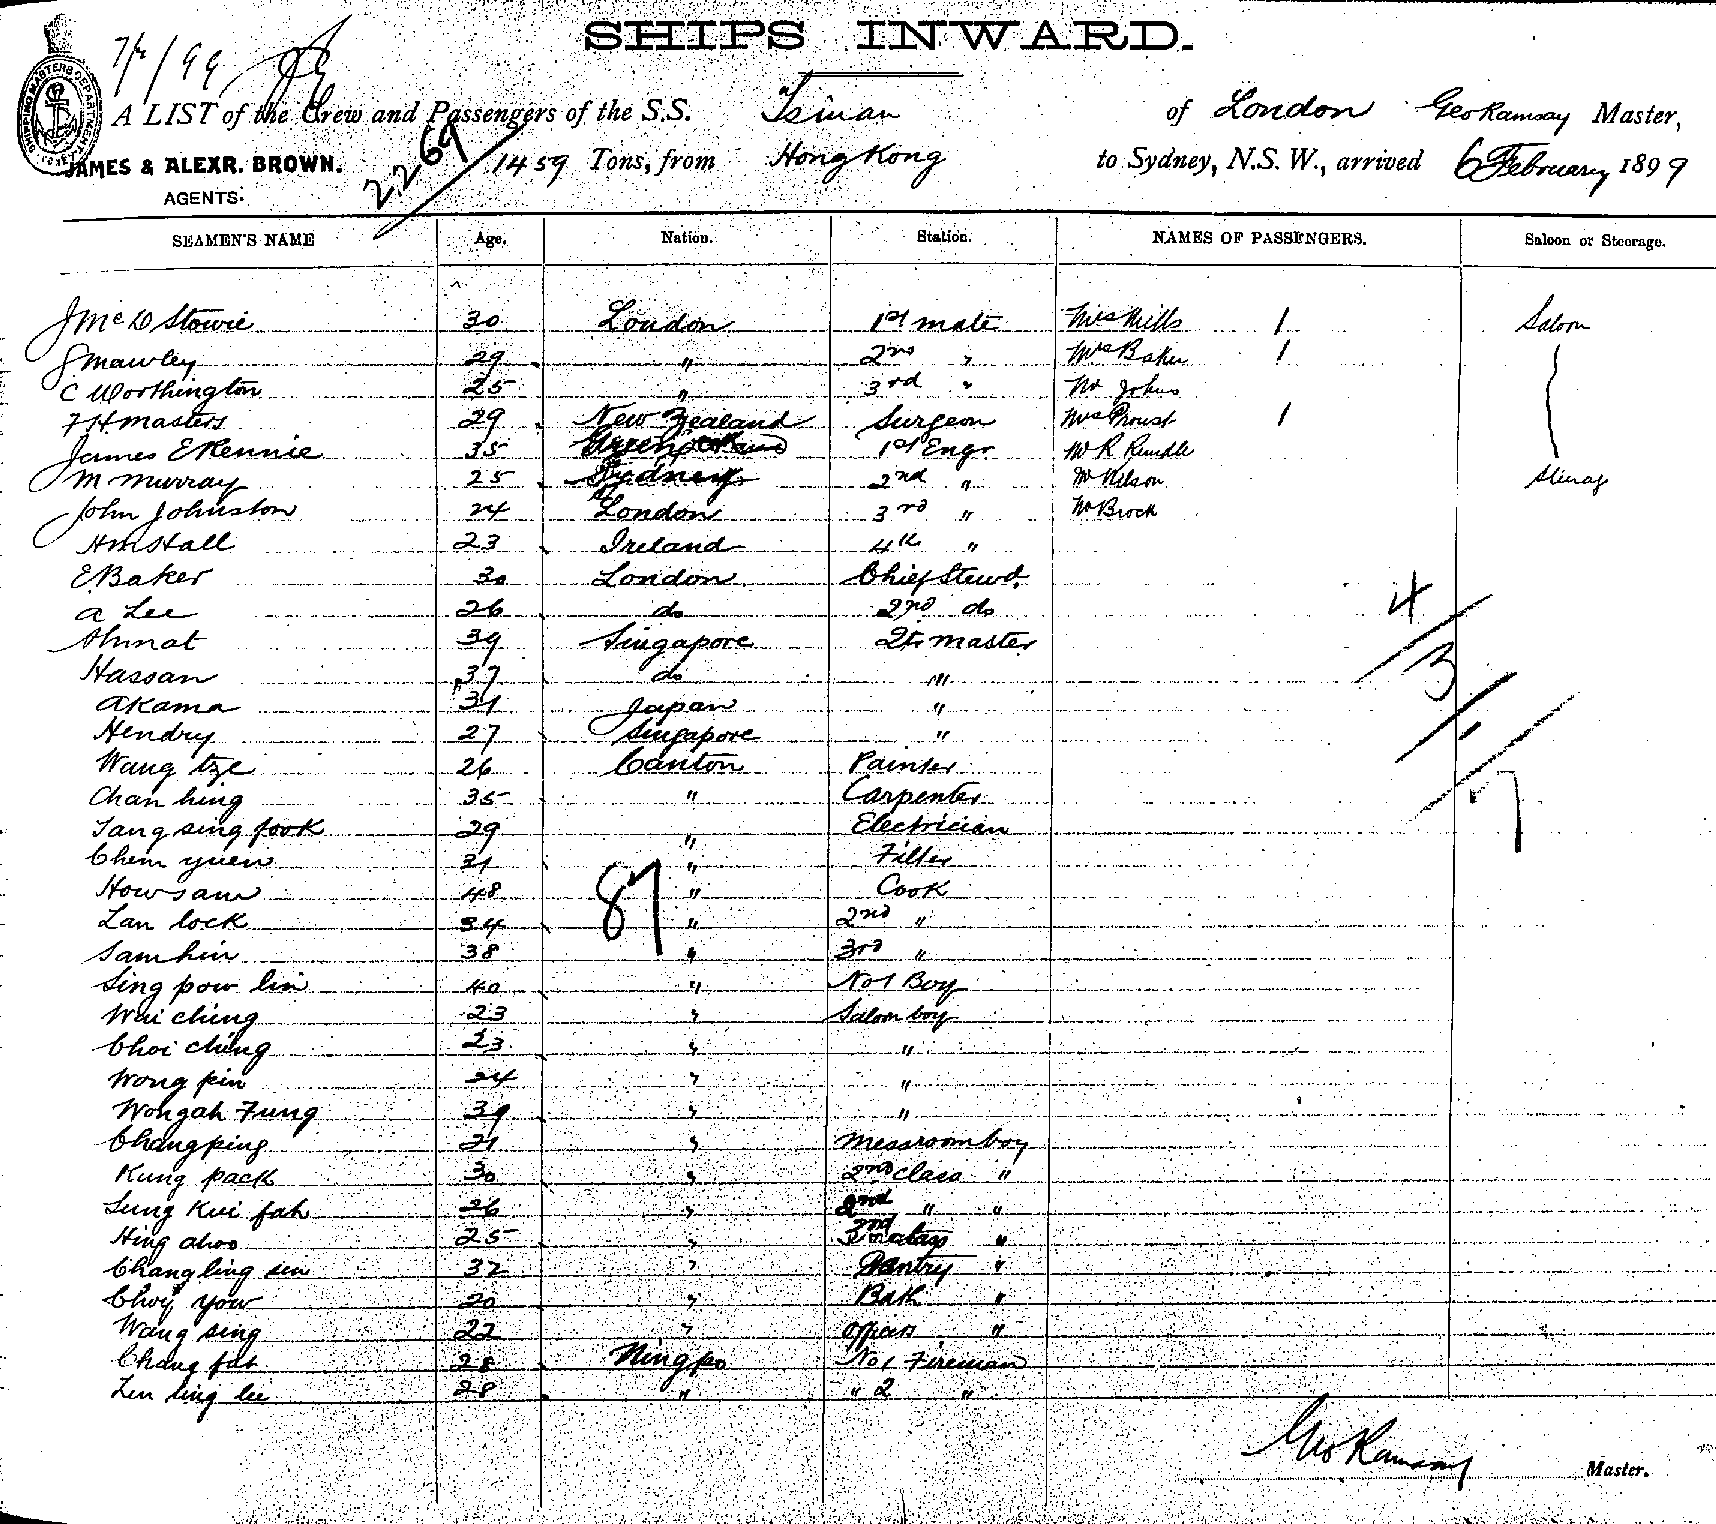 SHIPS INWARD.
7/2/99
A LIST of the Crew and Passengers of the S.S. "Tsinan of London Geo Ramsay Master,
2269 / 1459 Tons, from Hong Kong to Sydney, N.S.W., arrived 6 February 1899
JAMES & ALEXR. BROWN.
AGENTS.
SEAMEN'S NAME Age. Nation. Station. NAMES OF PASSENGERS. Saloon or Steerage.
J McD Stowie 30 London 1st mate Mrs Mills 1 Saloon
J Mawley 29 " 2nd " Mrs Baker 1
C Worthington 25 " 3rd " Mr Johns
F H Masters 29 New Zealand Surgeon Mrs Proust 1
James E Rennie 35 1st Engr Mr R Rundle
M Murray 25 Sydney 2nd " Mr Nelson Steerage
John Johnston 24 London 3rd " Mr Brock
Hm Hall 23 Ireland 4th "
E Baker 30 London Chief Stewd.
A Lee 26 do 2nd do
Ahmat 39 Singapore Qr master 4
Hassan 37 do " 3
Akama 31 Japan "
Hendry 27 Singapore " 1
Wang tze 26 Canton Painter
Chan hing 35 " Carpenter 7
Tang sing fook 29 " Electrician
Chem yuen 31 " Fitter
How sam 48 " Cook
87
Lan lock 34 " 2nd "
Sam hin 38 " 3rd "
Sing pow lin 40 " No 1 Boy
Wai ching 23 " Saloon boy
Choi ching 23 " "
Wong pin 24 " "
Wongah Fung 39 " "
Chang ping 21 " Messroom boy
Kung pack 30 " 2nd class "
Sung Kui fah 26 " 2nd " "
Hing ahoo 25 " 2nd "
Chang ling sin 32 " Pantry "
Choy yow 20 " Bath "
Wang sing 22 " Officers "
Chang fat 28 Ningpo No 1 Fireman
Lin ling lee 28 " " 2 "
Geo Ramsay Master.